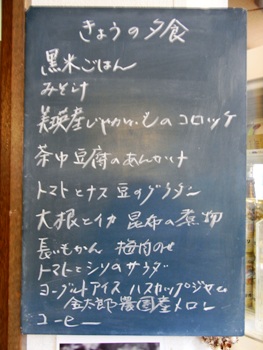 きょうの夕食
黒米ごはん
みそ汁
美瑛産じゃがいものコロッケ
茶巾豆腐のあんかけ
トマトとナス 豆のグラタン
大根とイカ 昆布の煮物
長いもかん 梅肉のせ
トマトとシソのサラダ
ヨーグルトアイス ハスカップジャム
金太郎農園産メロン
コーヒー